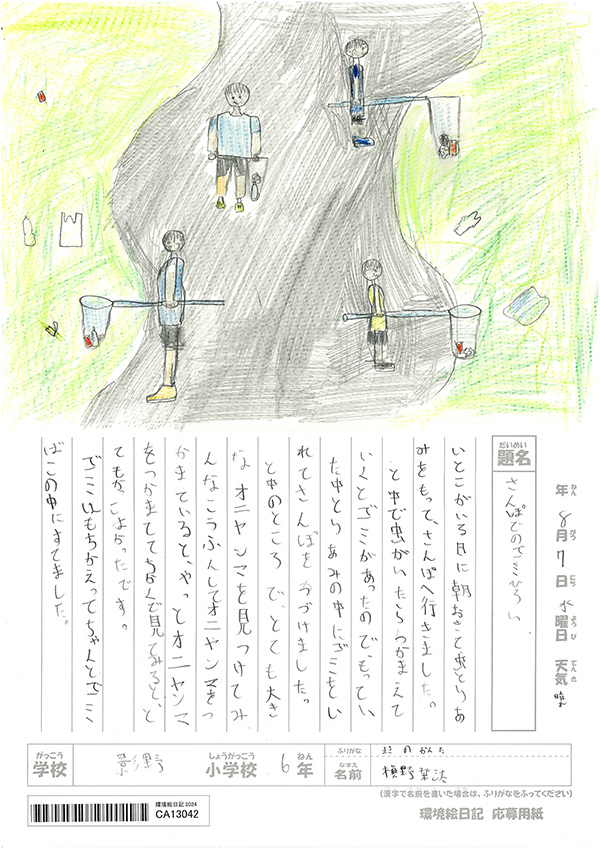 年 8月7日 水曜日 天気 晴
ねん がつ にち ようび てんき
だいめい
題名
さんぽでのゴミひろい
いとこがいる日に朝おきて虫とりあ
みをもって、さんぽへ行きました。
と中で虫がいたらつかまえて
いくとゴミがあったのでもってい
た虫とりあみの中にゴミをい
れてさんぽをつづけました。
と中のところで、とても大き
なオニヤンマを見つけてみ
んなこうふんしてオニヤンマをつ
かまていると、やっとオニヤンマ
をつかまててちかくで見てみると、と
てもかっこよかったです。
ゴミはもちかえってちゃんとゴミ
ばこの中にすてました。
がっこう しょうがっこう ねん
学校 影野 小学校 6年
ふりがな まきのかんた
なまえ
名前 槇野
(漢字で名前を書いた場合は、ふりがなをふってください)
環境絵日記2024
CA13042
環境絵日記 応募用紙